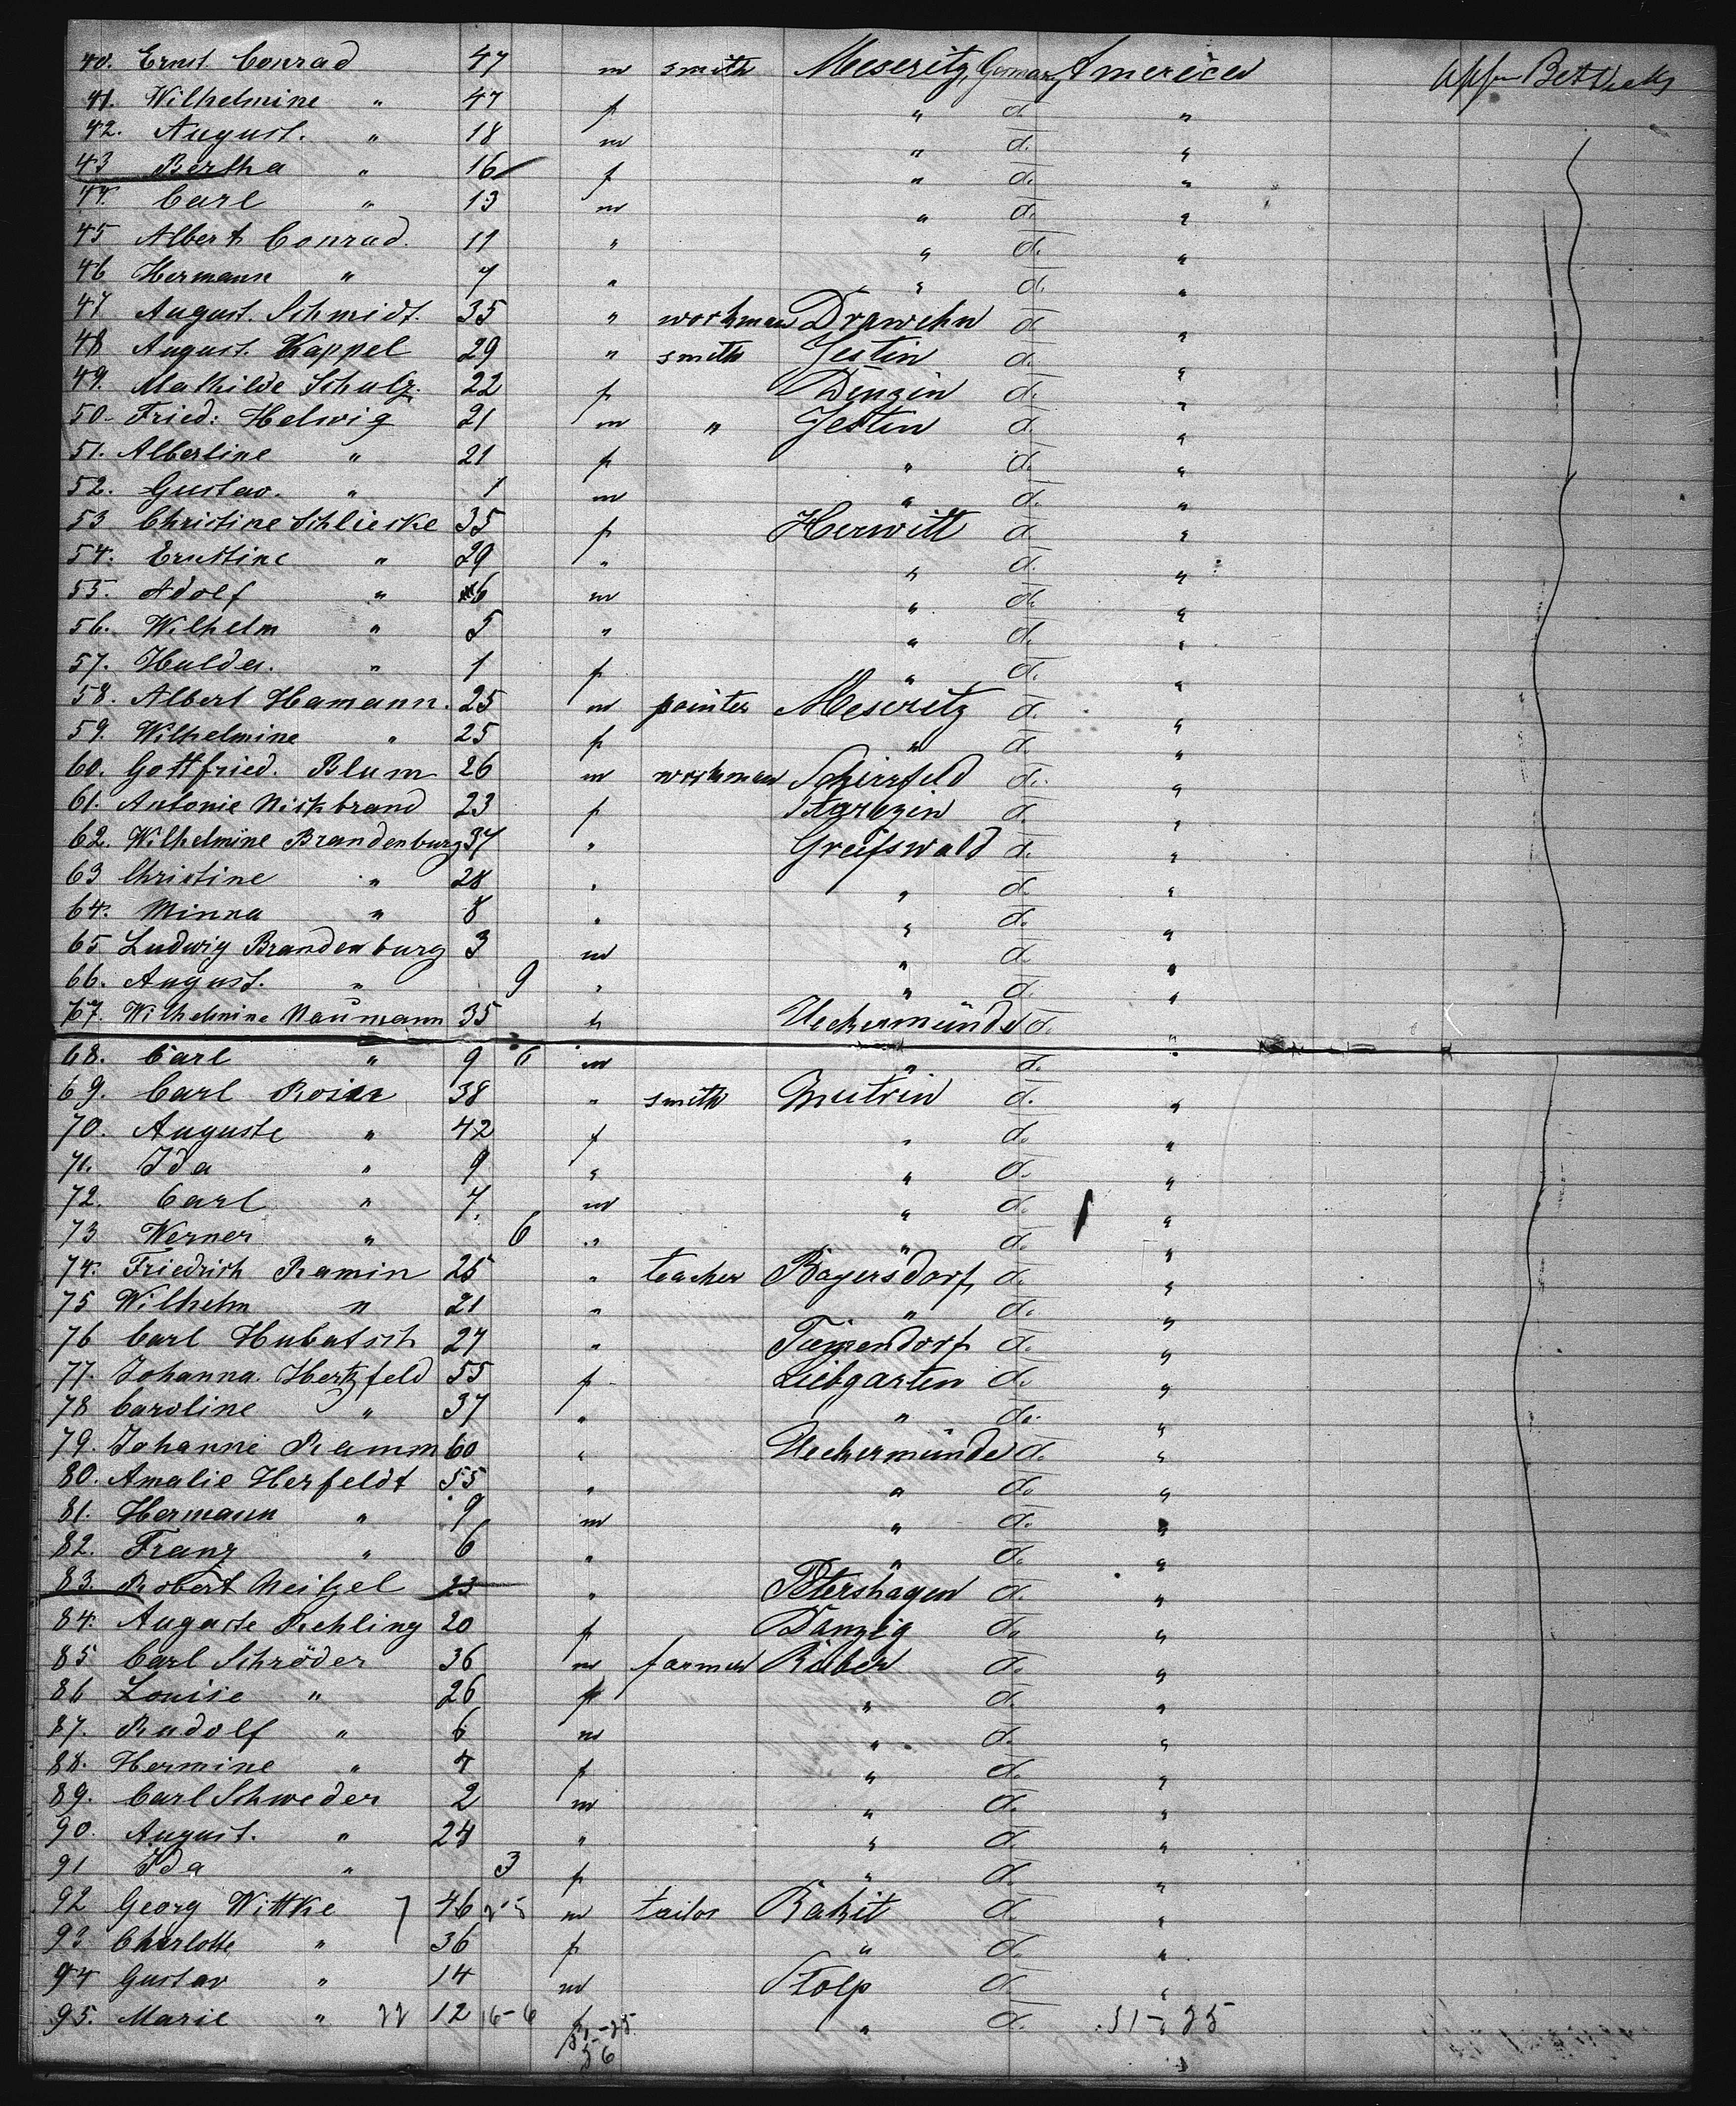 40. Ernst Conrad 47 m smith Meseritz, Germany America
41. Wilhelmine " 47 f " d. "
42. August. " 18 m " d. "
43 Bertha " 16 f " d. "
44. Carl " 13 m " d. "
45 Albert Conrad. 11 " " d. "
46 Hermann " 7 " " d. "
47 August. Schmidt. 35 " workman Drawehn d "
48 August. Kappel 29 " smith Jestin d. "
49. Mathilde Schulz. 22 f Denzin d. "
50. Fried: Helwig 21 m " Jestin d. "
51. Albertine " 21 f " d. "
52. Gustav. " 1 m " d. "
53 Christine Schlieske 35 f Herwitt d. "
54. Ernstine " 29 " " d. "
55. Adolf " 6 m " d. "
56. Wilhelm " 5 " " d. "
57. Hulda. " 1 f " d. "
58. Albert Hamann. 25 m painter Meseritz d. "
59. Wilhelmine " 25 f " d. "
60. Gottfried. Blum 26 m workman d. "
61. Antonie 23 f d. "
62. Wilhelmine Brandenburg 37 " Greifswald d. "
63 Christine " 28 " " d. "
64. Minna " 8 " " d. "
65 Ludwig Brandenburg 3 m " d. "
66. August. " 9 " " d. "
67. Wilhelmine Naumann 35 f Ueckermünde d. "
68. Carl " 9 6 m " d. "
69. Carl 38 " smith d. "
70. Auguste " 42 f " d. "
71. Ida " 9 " " d. "
72. Carl " 7. m " d. "
73 Werner " 6 " " d. "
74. Friedrich Ramin 25 " teacher Bagersdorf d. "
75 Wilhelm " 21 " " d. "
76 Carl Hubatsch 27 " d. "
77. Johanna. Hertzfeld 55 f Liebgarten d. "
78 Caroline " 37 " " do. "
79. Johanne Ramm 60 " Ueckermünde d. "
80. Amalie Herfeldt 55 " " do "
81. Hermann " 9 m " d. "
82. Franz " 6 " " d. "
83. Robert Neitzel 23 " Petershagen d. "
84. Auguste Rehling 20 f Danzig do "
85 Carl Schröder 36 m farmer Rüben d. "
86 Louise " 26 f " d. "
87. Rudolf " 6 m " d. "
88. Hermine " 4 f " d. "
89. Carl Schweder 2 m " d. "
90. August. " 24 " " d. "
91 Ida " 3 f " d. "
92 Georg Wittke 46 m tailor Rakit d. "
93 Charlotte " 36 f " d. "
94 Gustav " 14 m Stolp d. "
95. Marie " 22 12 6-6 f " d. 51-25